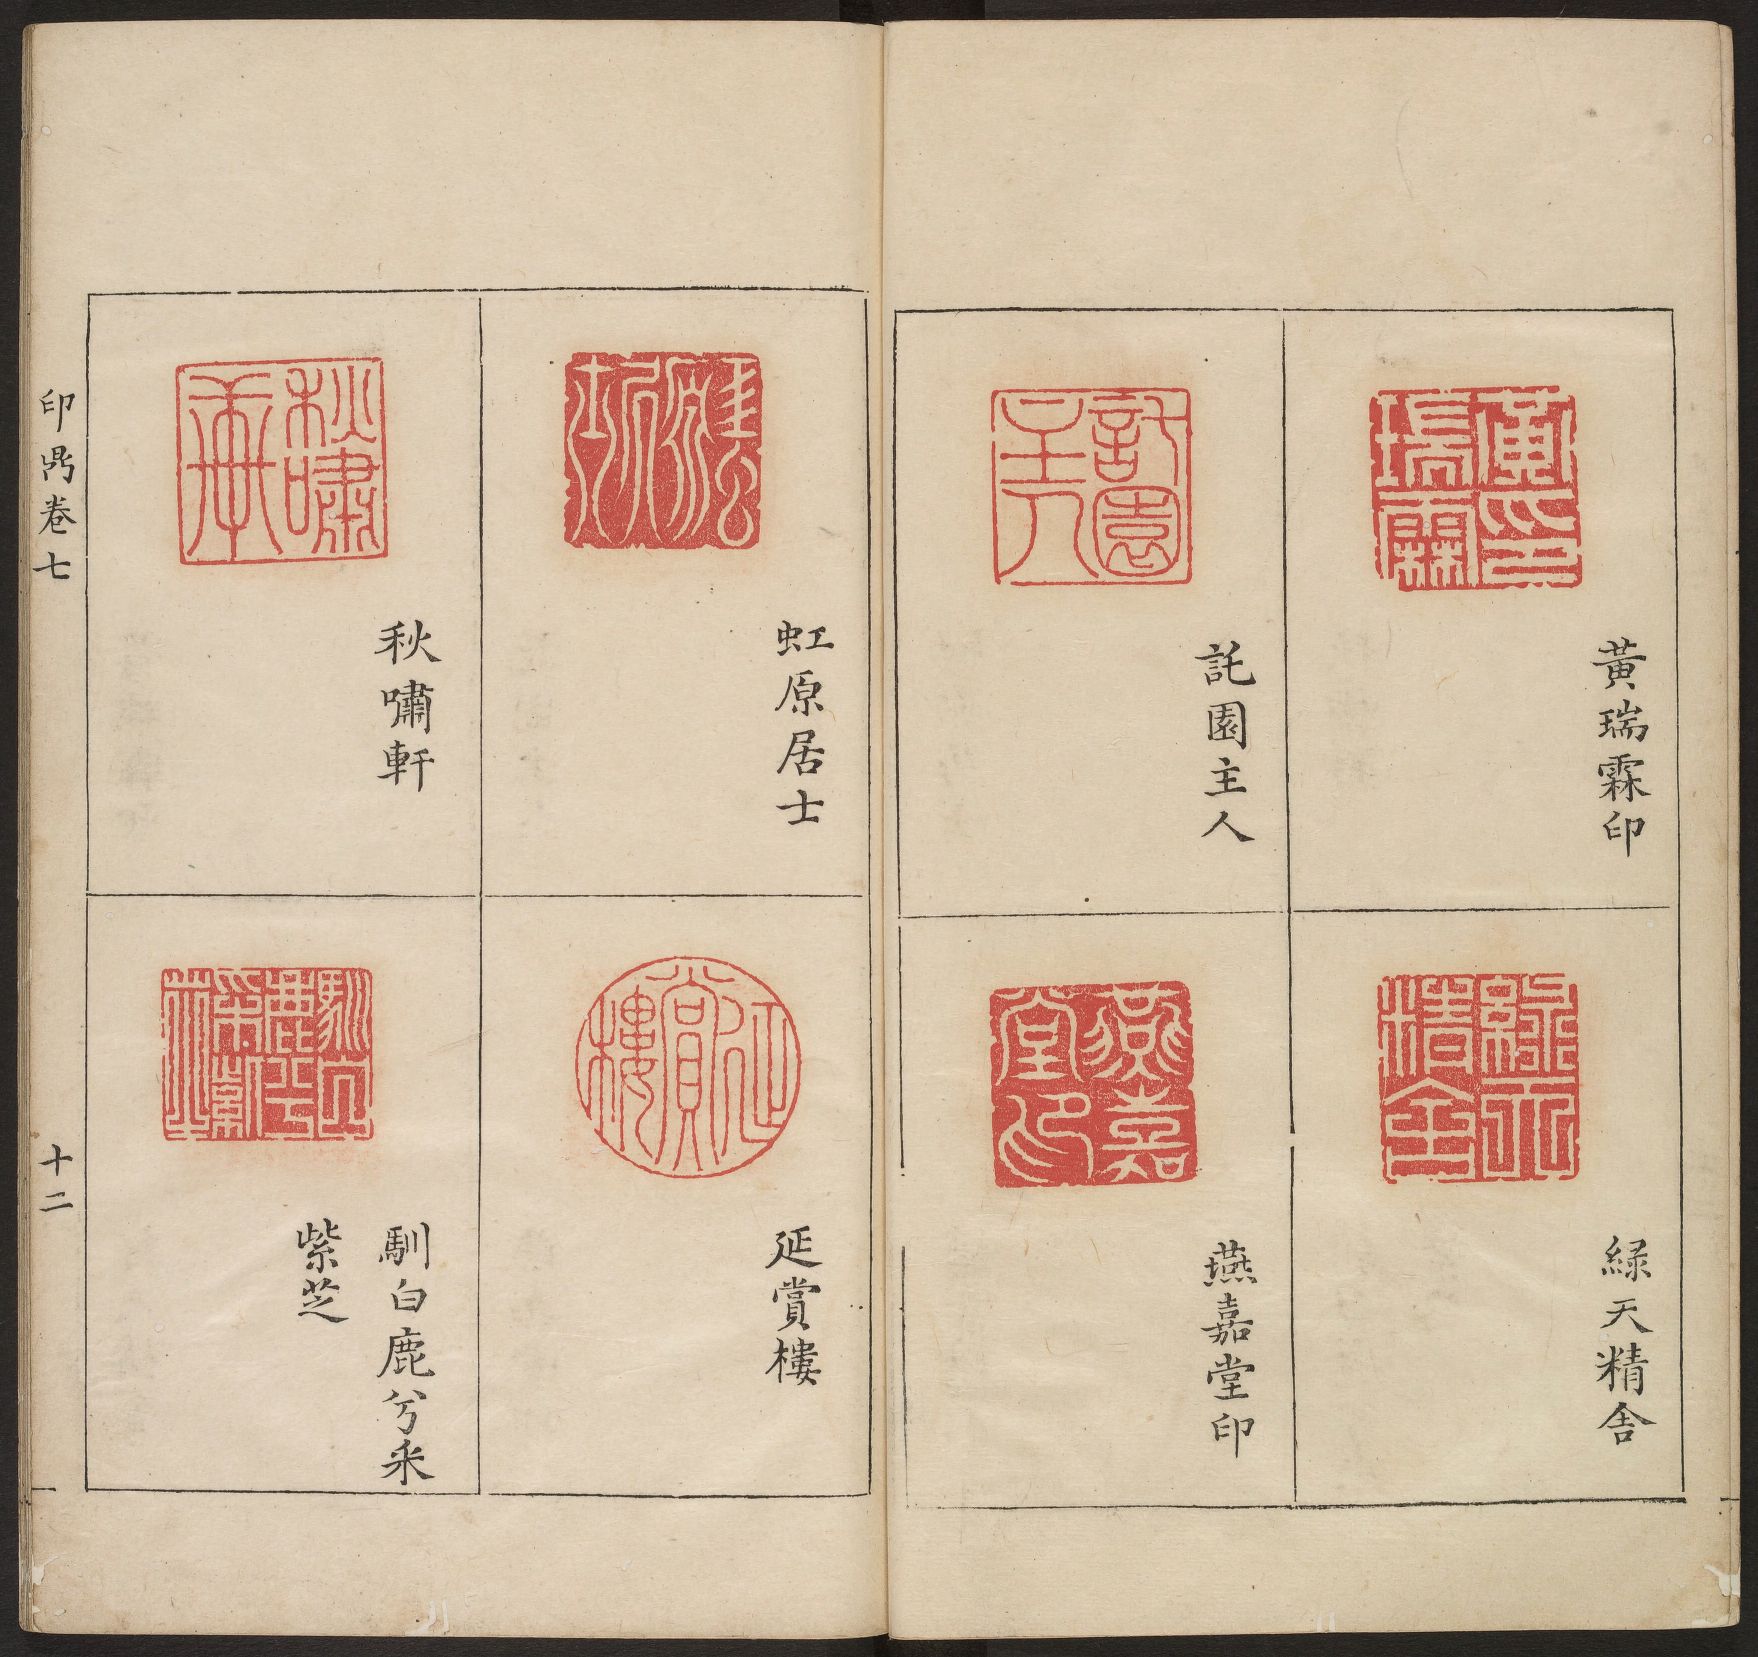 黃瑞霖印
綠天精舍
託園主人
燕嘉堂印
虹原居士
延賞樓
秋嘯軒
馴白鹿兮采
紫芝
印鼎卷七
十二